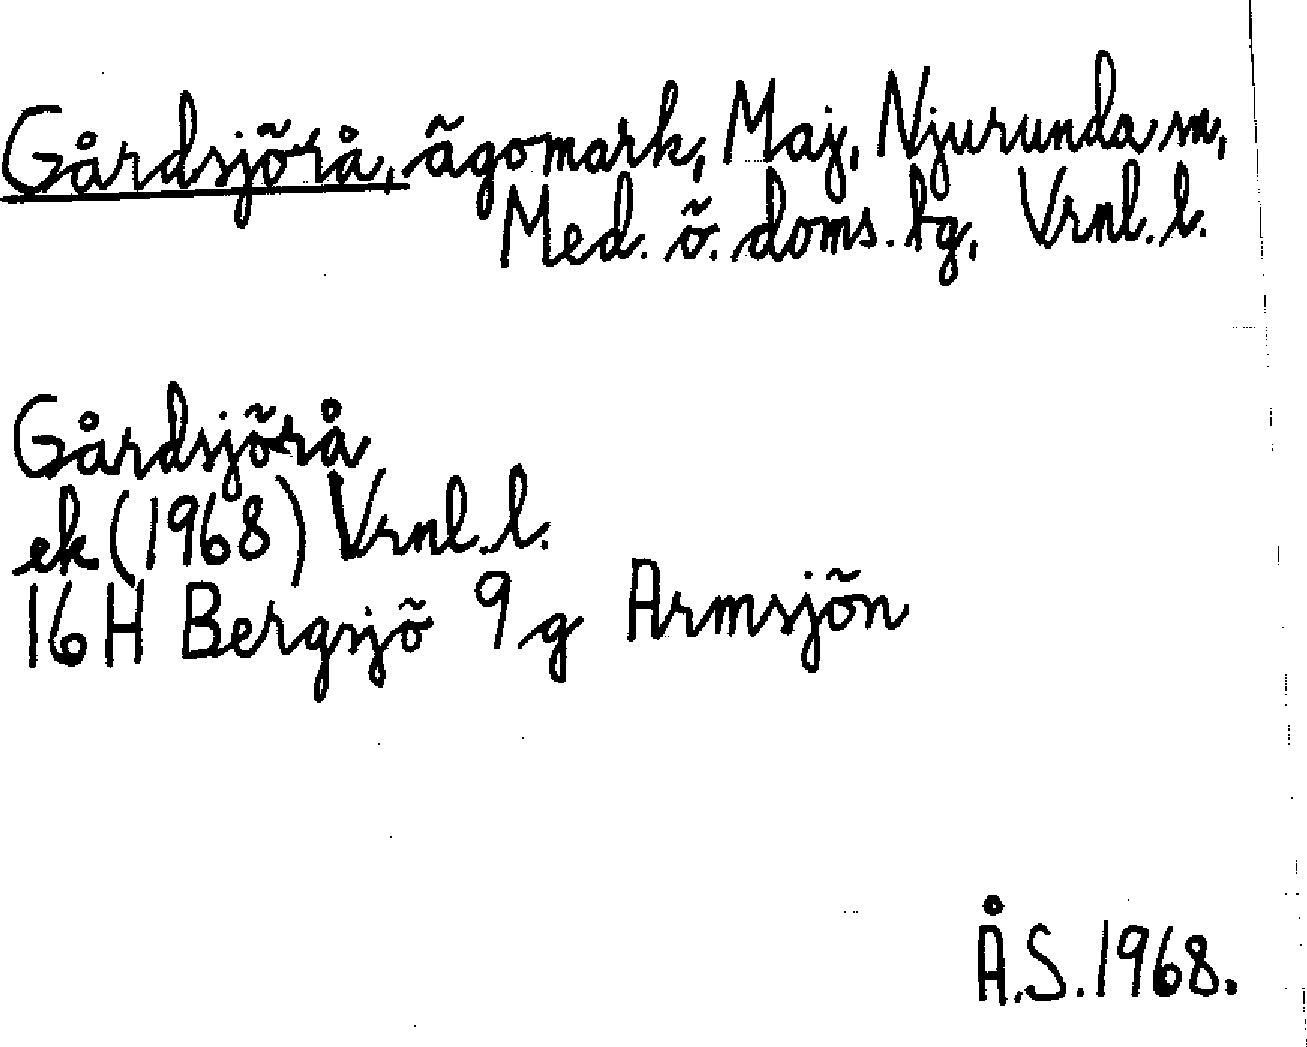 Gårdsjörå, ägomark, Maj, Njurunda sn,
Med. ö. doms. tg, Vrnl. l.
Gårdsjörå
ek (1968) Vrnl. l.
16H Bergsjö 9g Armsjön
Å.S. 1968.